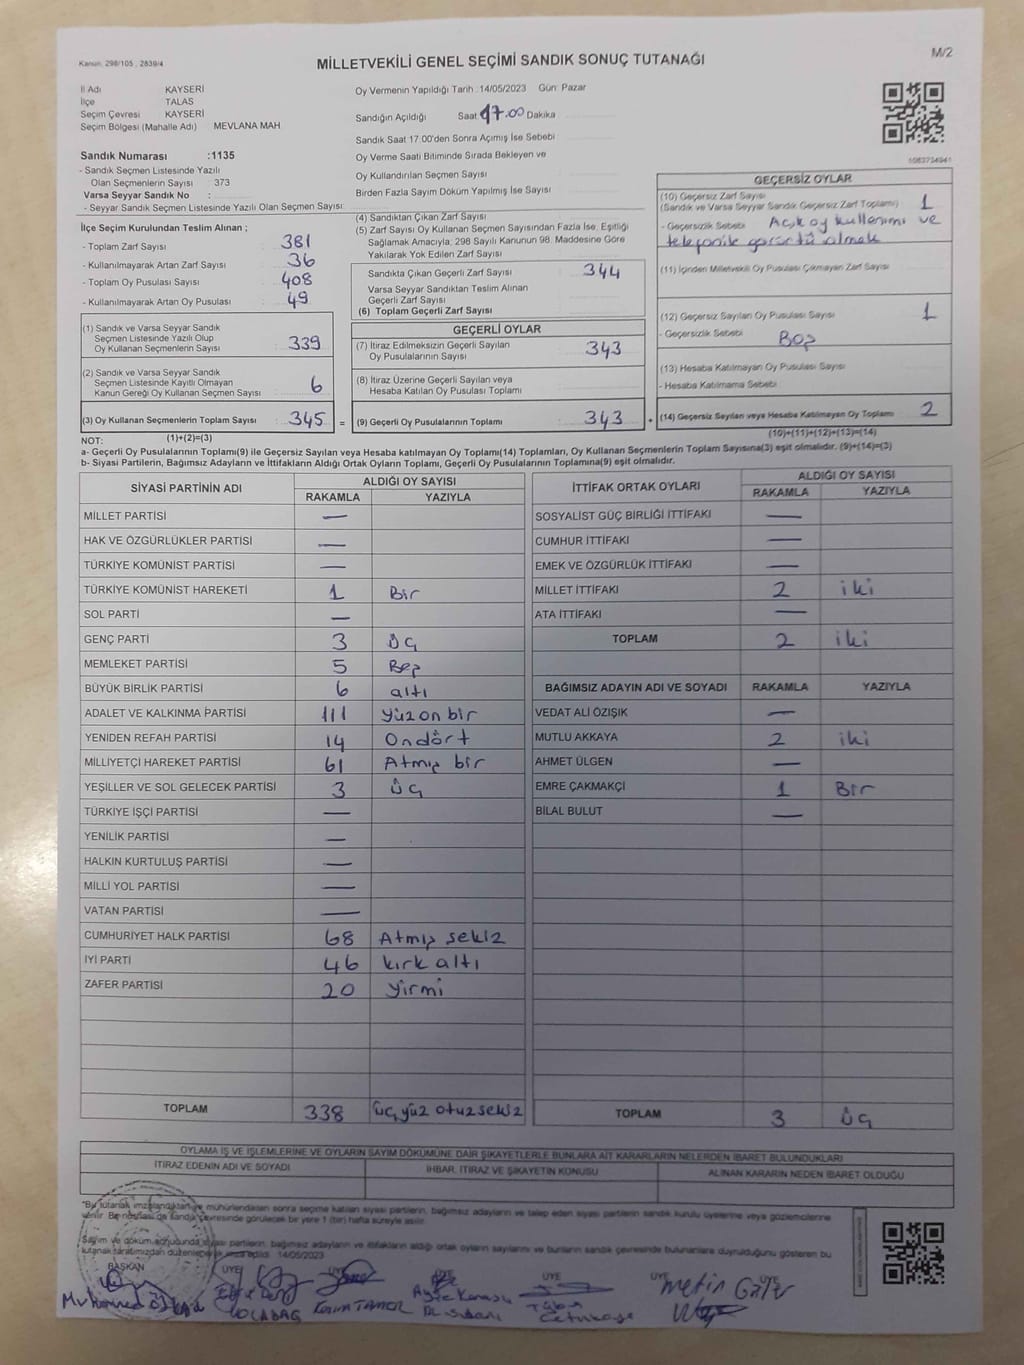 Kanun: 298/105 , 2839/4
MİLLETVEKİLİ GENEL SEÇİMİ SANDIK SONUÇ TUTANAĞI
M/2
İl Adı KAYSERİ
İlçe TALAS
Seçim Çevresi KAYSERİ
Seçim Bölgesi (Mahalle Adı) MEVLANA MAH
Sandık Numarası :1135
- Sandık Seçmen Listesinde Yazılı
Olan Seçmenlerin Sayısı : 373
Varsa Seyyar Sandık No :
- Seyyar Sandık Seçmen Listesinde Yazılı Olan Seçmen Sayısı:
Oy Vermenin Yapıldığı Tarih :14/05/2023 Gün: Pazar
Sandığın Açıldığı Saat 17.00 Dakika
Sandık Saat 17:00'den Sonra Açımış İse Sebebi
Oy Verme Saati Bitiminde Sırada Bekleyen ve
Oy Kullandırılan Seçmen Sayısı
Birden Fazla Sayım Döküm Yapılmış İse Sayısı
1083734941
İlçe Seçim Kurulundan Teslim Alınan ;
- Toplam Zarf Sayısı : 381
- Kullanılmayarak Artan Zarf Sayısı : 36
- Toplam Oy Pusulası Sayısı : 408
- Kullanılmayarak Artan Oy Pusulası : 49
(1) Sandık ve Varsa Seyyar Sandık
Seçmen Listesinde Yazılı Olup
Oy Kullanan Seçmenlerin Sayısı : 339
(2) Sandık ve Varsa Seyyar Sandık
Seçmen Listesinde Kayıtlı Olmayan
Kanun Gereği Oy Kullanan Seçmen Sayısı : 6
(3) Oy Kullanan Seçmenlerin Toplam Sayısı : 345 =
(1)+(2)=(3)
(4) Sandıktan Çıkan Zarf Sayısı
(5) Zarf Sayısı Oy Kullanan Seçmen Sayısından Fazla İse, Eşitliği
Sağlamak Amacıyla; 298 Sayılı Kanunun 98. Maddesine Göre
Yakılarak Yok Edilen Zarf Sayısı
Sandıkta Çıkan Geçerli Zarf Sayısı : 344
Varsa Seyyar Sandıktan Teslim Alınan
Geçerli Zarf Sayısı
(6) Toplam Geçerli Zarf Sayısı
GEÇERLİ OYLAR
(7) İtiraz Edilmeksizin Geçerli Sayılan
Oy Pusulalarının Sayısı : 343
(8) İtiraz Üzerine Geçerli Sayılan veya
Hesaba Katılan Oy Pusulası Toplamı
(9) Geçerli Oy Pusulalarının Toplamı : 343 +
GEÇERSİZ OYLAR
(10) Geçersiz Zarf Sayısı 1
(Sandık ve Varsa Seyyar Sandık Geçersiz Zarf Toplamı)
- Geçersizlik Sebebi Açık oy kullanımı ve
telefonile görüntü almak
(11) İçinden Milletvekili Oy Pusulası Çıkmayan Zarf Sayısı
(12) Geçersiz Sayılan Oy Pusulası Sayısı : 1
- Geçersizlik Sebebi : Boş
(13) Hesaba Katılmayan Oy Pusulası Sayısı
- Hesaba Katılmama Sebebi :
(14) Geçersiz Sayılan veya Hesaba Katılmayan Oy Toplamı : 2
(10)+(11)+(12)+(13)=(14)
NOT:
a- Geçerli Oy Pusulalarının Toplamı(9) ile Geçersiz Sayılan veya Hesaba katılmayan Oy Toplamı(14) Toplamları, Oy Kullanan Seçmenlerin Toplam Sayısına(3) eşit olmalıdır. (9)+(14)=(3)
b- Siyasi Partilerin, Bağımsız Adayların ve İttifakların Aldığı Ortak Oyların Toplamı, Geçerli Oy Pusulalarının Toplamına(9) eşit olmalıdır.
SİYASİ PARTİNİN ADI ALDIĞI OY SAYISI
RAKAMLA YAZIYLA
MİLLET PARTİSİ —
HAK VE ÖZGÜRLÜKLER PARTİSİ —
TÜRKİYE KOMÜNİST PARTİSİ —
TÜRKİYE KOMÜNİST HAREKETİ 1 Bir
SOL PARTİ —
GENÇ PARTİ 3 üç
MEMLEKET PARTİSİ 5 Beş
BÜYÜK BİRLİK PARTİSİ 6 altı
ADALET VE KALKINMA PARTİSİ 111 yüzonbir
YENİDEN REFAH PARTİSİ 14 Ondört
MİLLİYETÇİ HAREKET PARTİSİ 61 Atmış bir
YEŞİLLER VE SOL GELECEK PARTİSİ 3 üç
TÜRKİYE İŞÇİ PARTİSİ —
YENİLİK PARTİSİ —
HALKIN KURTULUŞ PARTİSİ —
MİLLİ YOL PARTİSİ —
VATAN PARTİSİ —
CUMHURİYET HALK PARTİSİ 68 Atmış sekiz
İYİ PARTİ 46 kırk altı
ZAFER PARTİSİ 20 yirmi
TOPLAM 338 üçyüz otuzsekiz
İTTİFAK ORTAK OYLARI ALDIĞI OY SAYISI
RAKAMLA YAZIYLA
SOSYALİST GÜÇ BİRLİĞİ İTTİFAKI —
CUMHUR İTTİFAKI —
EMEK VE ÖZGÜRLÜK İTTİFAKI —
MİLLET İTTİFAKI 2 iki
ATA İTTİFAKI —
TOPLAM 2 iki
BAĞIMSIZ ADAYIN ADI VE SOYADI RAKAMLA YAZIYLA
VEDAT ALİ ÖZIŞIK —
MUTLU AKKAYA 2 iki
AHMET ÜLGEN —
EMRE ÇAKMAKÇİ 1 Bir
BİLAL BULUT —
TOPLAM 3 üç
OYLAMA İŞ VE İŞLEMLERİNE VE OYLARIN SAYIM DÖKÜMÜNE DAİR ŞİKAYETLERLE BUNLARA AİT KARARLARIN NELERDEN İBARET BULUNDUKLARI
İTİRAZ EDENİN ADI VE SOYADI İHBAR, İTİRAZ VE ŞİKAYETİN KONUSU ALINAN KARARIN NEDEN İBARET OLDUĞU
"Bu tutanak imzalandıktan ve mühürlendikten sonra seçime katılan siyasi partilerin, bağımsız adayların ve talep eden siyasi partilerin sandık kurulu üyelerine veya gözlemcilerine
verilir. Bir nüshası da sandık çevresinde görülecek bir yere 1 (bir) hafta süreyle asılır.
Sayım ve döküm sonucunda siyasi partilerin, bağımsız adayların ve ittifakların aldığı ortak oyların sayılarını ve bunların sandık çevresinde bulunanlara duyrulduğunu gösteren bu
tutanak tarafımızdan düzenlenerek imza edildi. 14/05/2023
BAŞKAN ÜYE ÜYE ÜYE ÜYE ÜYE
Metin Güler